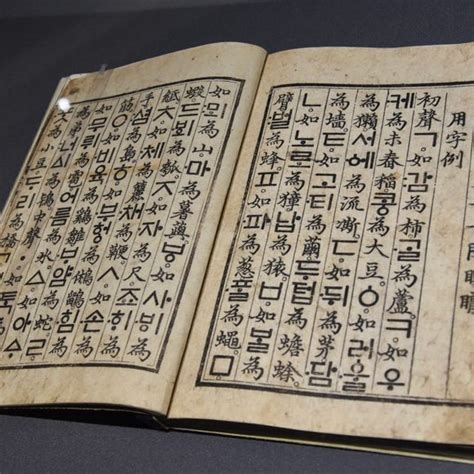 用字例
初聲ㄱ。如감為柿。ᄀᆞᆯ為蘆。ㅋ。如우
케為未舂稻。콩為大豆。ㆁ。如러울
為獺。서ᅌᅦ為流凘。ㄷ。如뒤為茅。담
為墻。ㅌ。如고티為繭。두텁為蟾蜍。
ㄴ。如노로為獐。납為猿。ㅂ。如ᄇᆞᆯ為
臂。벌為蜂。ㅍ。如파為葱。ᄑᆞᆯ為蠅。ㅁ。
如뫼為山。마為薯藇。ㅸ。如사ᄫᅵ為
蝦。드ᄫᅴ為瓠。ㅈ。如자為尺。죠ᄒᆡ為
紙。ㅊ。如체為籭。채為鞭。ㅅ。如손為
手。셤為島。ㅎ。如부헝為鵂鶹。힘為
筋。ㅇ。如비육為鷄雛。ᄇᆞ얌為蛇。ㄹ。
如무뤼為雹。어름為氷。ㅿ。如아ᅀᆞ
為弟。너ᅀᅵ為鴇。中聲ㆍ。如ᄐᆞᆨ為
ᄑᆞᆺ為小豆。ᄃᆞ리為橋。